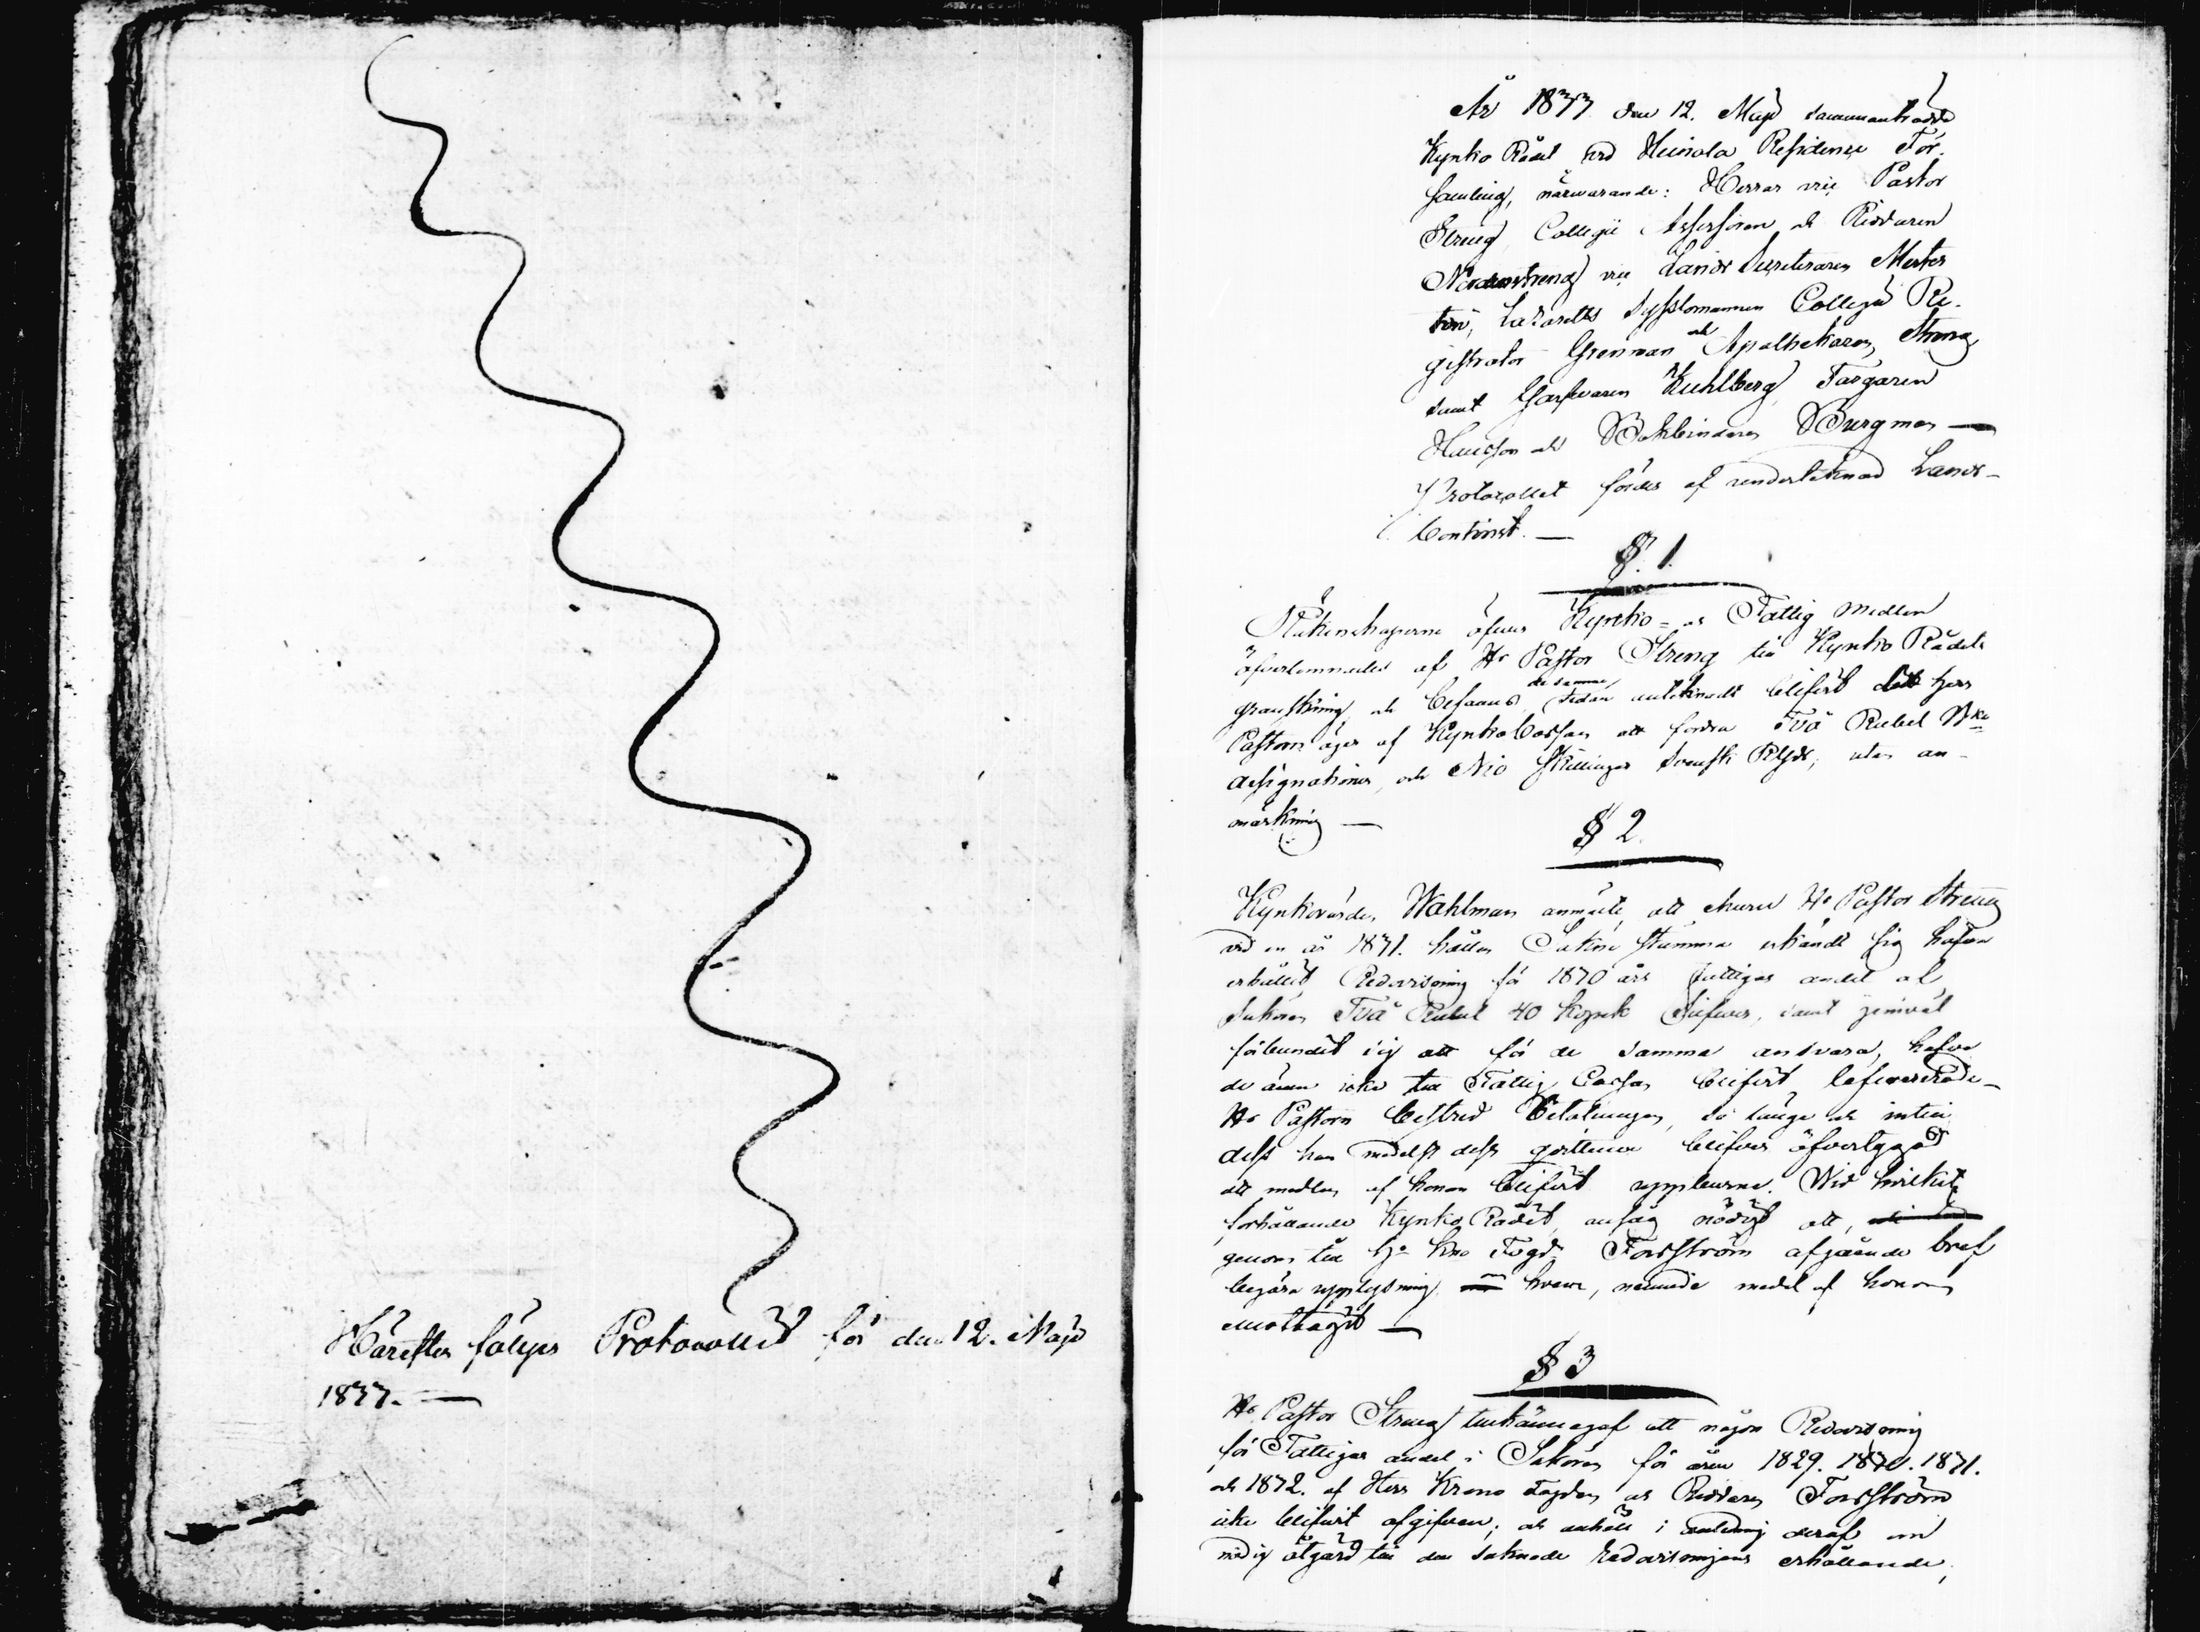 Härefter följer Protocollet för den 12. Maji
1833. —
År 1833 den 12. Maji sammanträdde
Kyrko Rådet vid Heinola Residence För-
samling, närwarande: Herrar vice Pastor
Streng Collegii Assessoren och Riddaren
Nordenstreng vice Lands Secreteraren Merten
Lazaretts Sysslomannen Collegii Re-
gistrator Grenman och Apothekaren Streng
samt Garfvaren Kuhlberg Färgaren
Hansson och Bokbindaren Bergman —
Protocollet fördes af undertecknad Lands-
Contorist. —
§. 1.
Räkenskaperne öfver Kyrko- och Fattig medlen
öfverlemnades af Hr Pastor Streng till Kyrko Rådets
granskning, och befanns, sedan de samme antecknadt blifvit det herr
Pastorn äger af Kyrko Cassan att fordra Två Rubel
assignationer, och Nio Skillingar Svenskt Rgds, utan an-
märkning —
§ 2.
Kyrkovärden Wahlman anmälte, att ehuru Hr Pastor Streng
vid en år 1831. hållen Sockne stämma erkändt sig hafva
erhållit Redovisning för 1830 års fattigas andel af
Sakören Två Rubel 40 Kopek Silfver, samt jemväl
förbundit sig att för de samma ansvara, hafva
de ännu icke till Fattig Cassan blifvit lefvererade —
Hr Pastorn bestred betalningen, så länge och intill
dess han medelst dess qvittence blifver öfvertygad
att medlen af honom blifvit uppburne. Wid hvilket
förhållande Kyrko Rådet ansåg nödigt att,
genom till Hr Krono Fogden Forsström afgående bref
begära upplysning om hvem, nämnde medel af honom
emottagit —
§ 3
Hr Pastor Streng tillkännagaf att någon Redovisning
för Fattigas andel i Saköron för åren 1829. 1830. 1831.
och 1832. af Herr Krono Fogden och Riddaren Forsström
icke blifvit afgifven; och anhöll i anledning deraf om
nödig åtgärd till den saknade redovisningens erhållande,